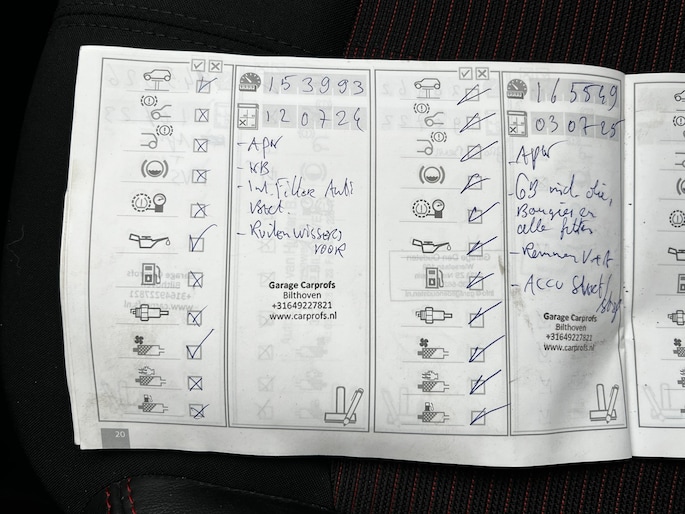 153993
120724
- APK
- KB
- Int. Filter Anti
Bact.
- Ruitenwissers
voor
Garage Carprofs
Bilthoven
+31649227821
www.carprofs.nl
20
165549
030725
- APK
- GB incl olie,
Bougies en
alle filters
- Remmen V+A
- ACCU Start/
stop
Garage Carprofs
Bilthoven
+31649227821
www.carprofs.nl